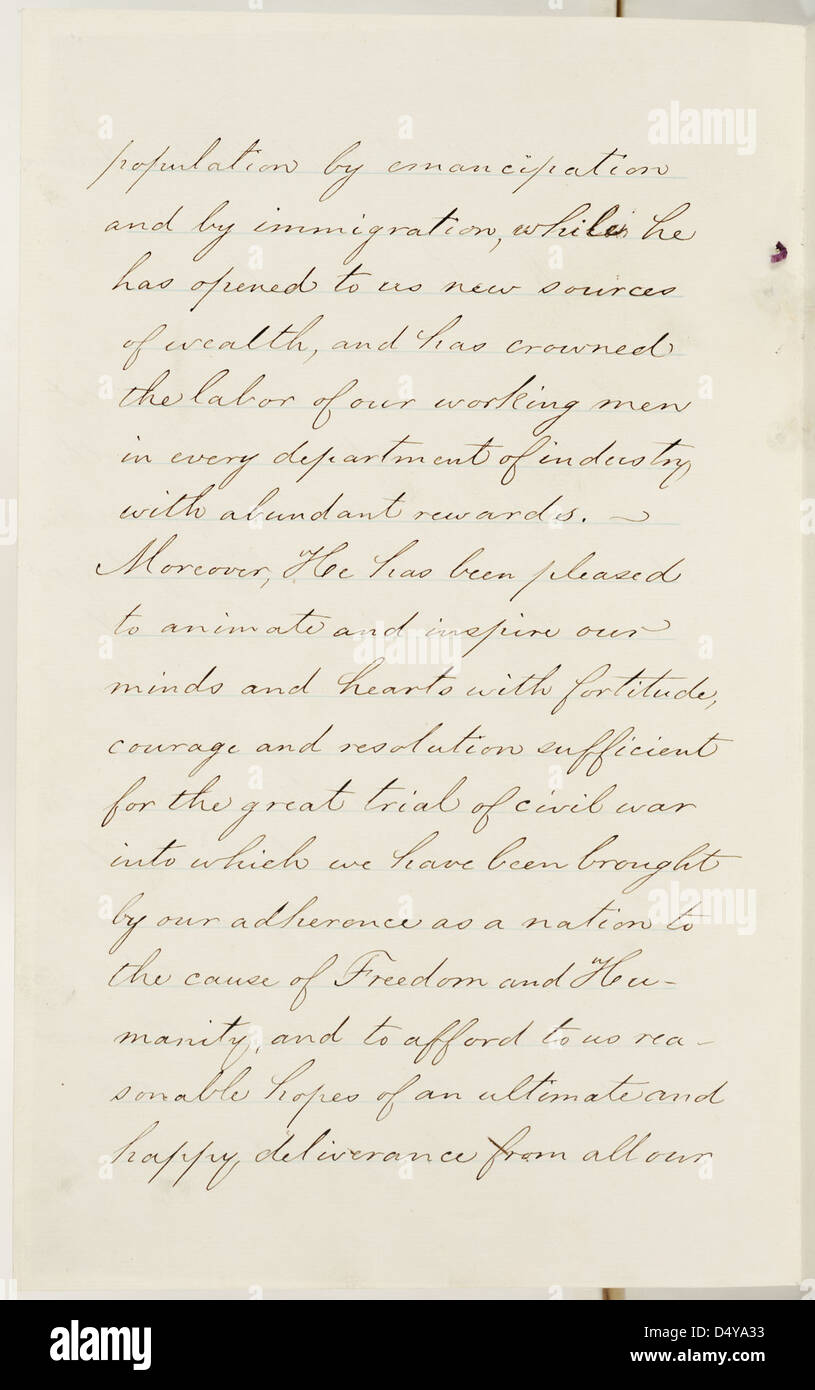 population by emancipation
and by immigration, while he
has opened to us new sources
of wealth, and has crowned
the labor of our working men
in every department of industry
with abundant rewards. ~
Moreover, He has been pleased
to animate and inspire our
minds and hearts with fortitude,
courage and resolution sufficient
for the great trial of civil war
into which we have been brought
by our adherence as a nation to
the cause of Freedom and Hu-
manity, and to afford to us rea-
sonable hopes of an ultimate and
happy deliverance from all our
a
alamy
a
a
a
alamy
a
a
alamy
a
alamy
Image ID: D4YA33
www.alamy.com